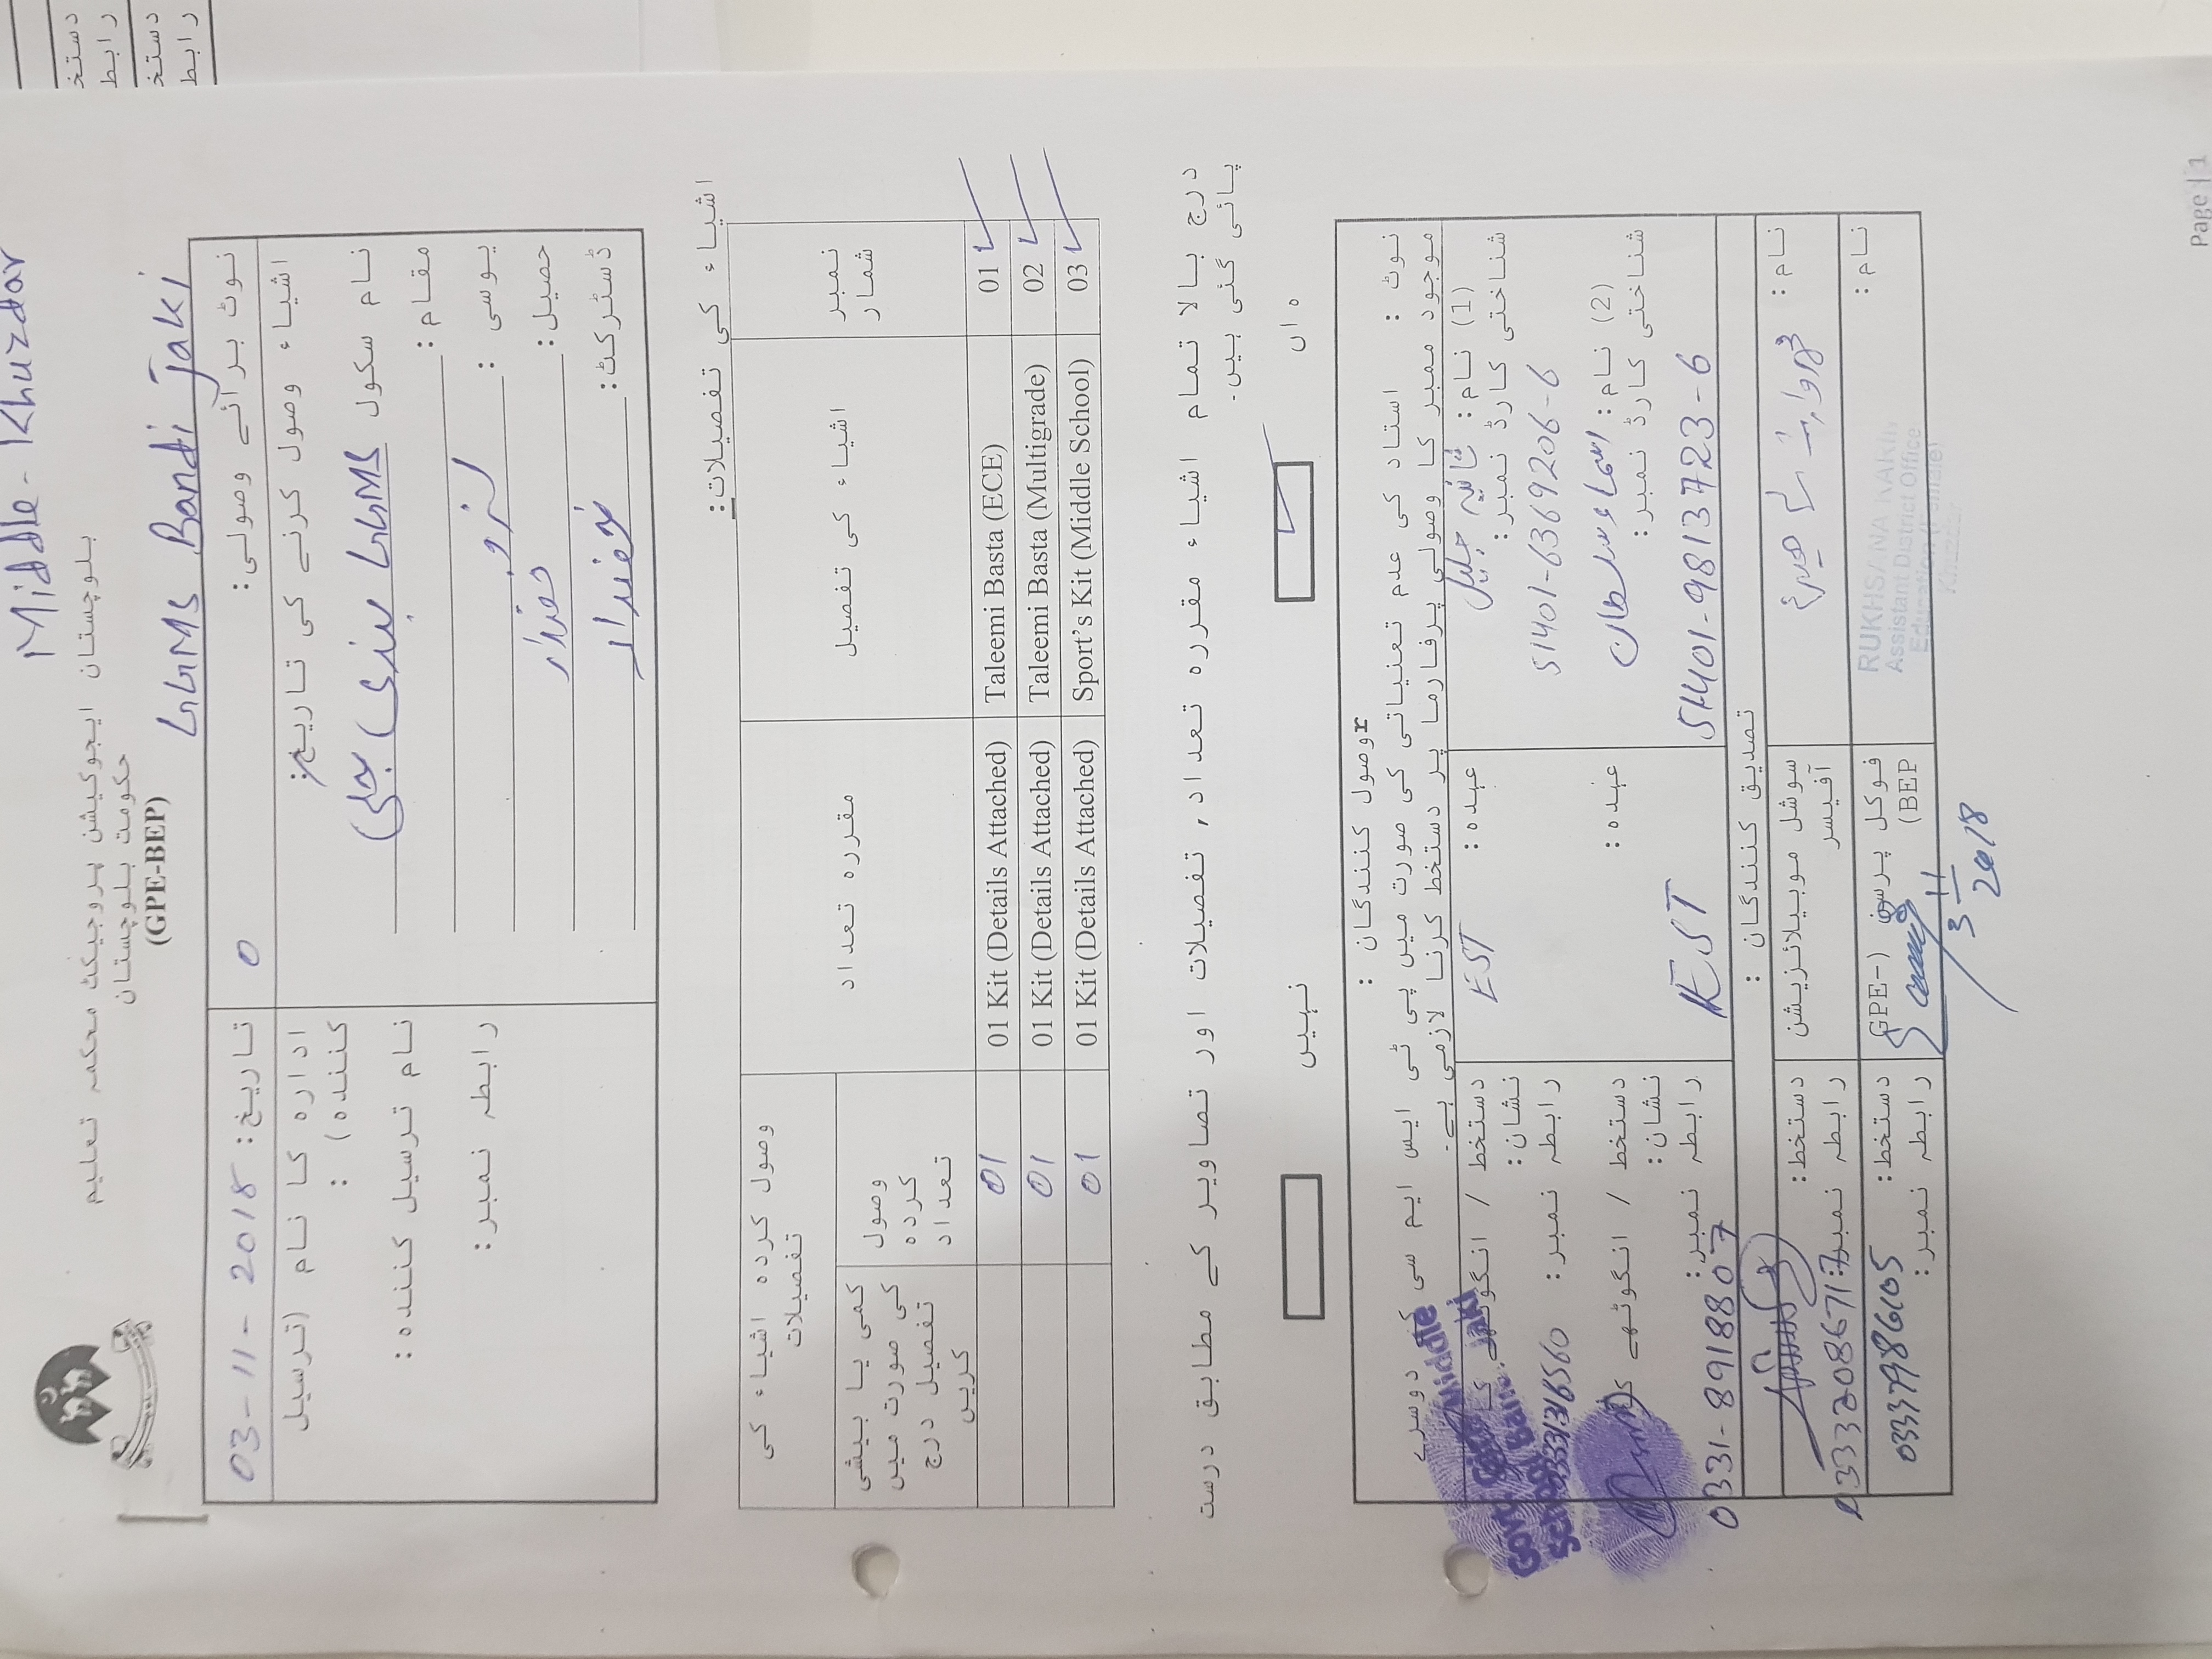 Middle - Khuzdar
بلوچستان ایجوکیشن پروجیکٹ محکمہ تعلیم
حکومت بلوچستان
(GPE-BEP)
GGMS Bandi Jaki
نوٹ برائے وصولی: 0
تاریخ: 03-11-2018
اشیاء وصول کرنے کی تاریخ:
ادارہ کا نام (ترسیل کنندہ) :
نام سکول GGMS بندی جکی
نام ترسیل کنندہ:
مقام:
رابطہ نمبر:
یوسی :
حصیل: خضدار
ڈسٹرکٹ: خضدار
اشیاء کی تفصیلات:
نمبر شمار
اشیاء کی تفصیل
مقررہ تعداد
وصول کردہ اشیاء کی تفصیلات
وصول کردہ تعداد
کمی یا بیشی کی صورت میں تفصیل درج کریں
01 Taleemi Basta (ECE) 01 Kit (Details Attached) 01
02 Taleemi Basta (Multigrade) 01 Kit (Details Attached) 01
03 Sport's Kit (Middle School) 01 Kit (Details Attached) 01
درج بالا تمام اشیاء مقررہ تعداد، تفصیلات اور تصاویر کے مطابق درست
پائی گئی ہیں۔
ہاں
نہیں
وصول کنندگان :
نوٹ : استاد کی عدم تعنیاتی کی صورت میں پی ٹی ایس ایم سی کے دوسرے
موجود ممبر کا وصولی پرفارما پر دستخط کرنا لازمی ہے۔
(1) نام: ثانیہ جلیل
عہدہ: EST
دستخط / انگوٹھے کا نشان:
شناختی کارڈ نمبر: 51401-6369206-6
رابطہ نمبر: 03331316560
Govt Girls Middle
School Bandi Jaki
(2) نام: اسماء سلطان
عہدہ: EST
دستخط / انگوٹھے کا نشان:
شناختی کارڈ نمبر: 51401-9813723-6
رابطہ نمبر: 0331-8918807
تصدیق کنندگان :
نام:
سوشل موبیلائزیشن آفیسر
دستخط:
رابطہ نمبر:
نام:
RUKHSANA
Assistant District Office
Education (Female)
فوکل پرسن (GPE-BEP)
3/11
2018
دستخط:
رابطہ نمبر: 03337986105
Page | 1
دستخ
رابط
دستخ
رابط